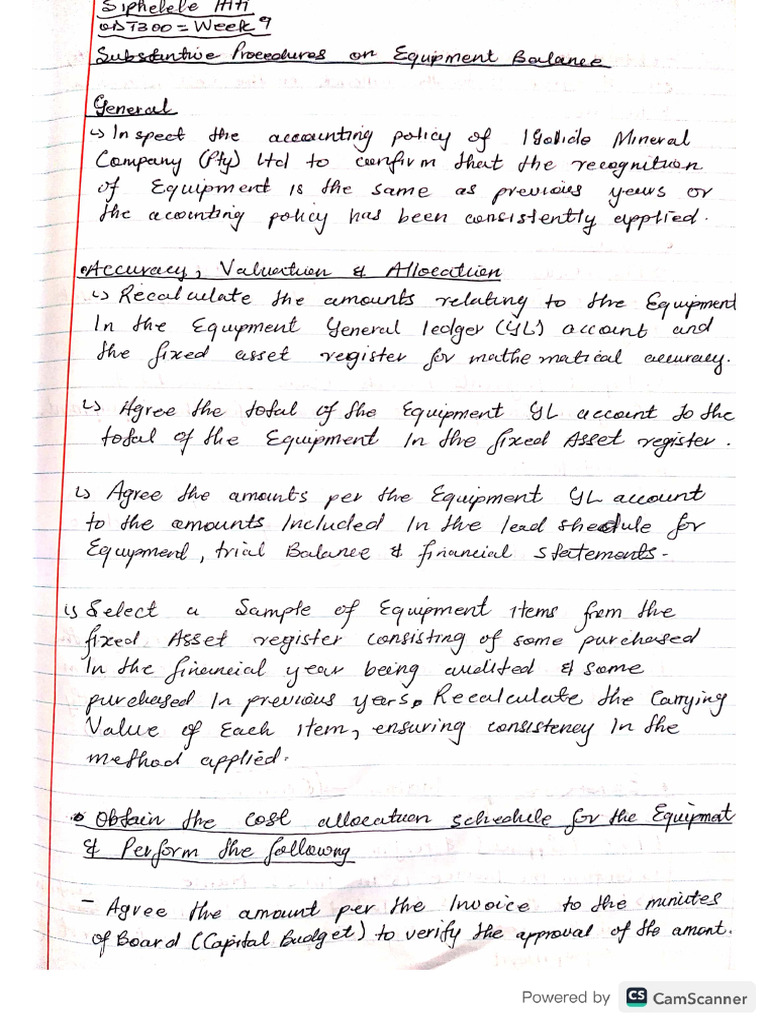 Siphelele
= Week 9
Substantive Procedures on Equipment Balance
General
↳ Inspect the accounting policy of Mineral
Company (Pty) Ltd to confirm that the recognition
of Equipment is the same as previous years or
the acounting policy has been consistently applied.
Accuracy, Valuation & Allocation
↳ Recalculate the amounts relating to the Equipment
In the Equipment General ledger (GL) account and
the fixed asset register for mathematical accuracy.
↳ Agree the total of the Equipment GL account to the
total of the Equipment In the fixed Asset register.
↳ Agree the amounts per the Equipment GL account
to the amounts Included In the lead shedule for
Equipment, trial Balance & financial statements.
↳ Select a Sample of Equipment items from the
fixed Asset register consisting of some purchased
In the financial year being audited & some
purchased In previous years. Recalculate the Carrying
Value of Each item, ensuring consistency In the
method applied.
• Obtain the cost allocation schedule for the Equipmat
& Perform the following
- Agree the amount per the Invoice to the minutes
of Board (Capital Budget) to verify the approval of the amont.
Powered by CS CamScanner